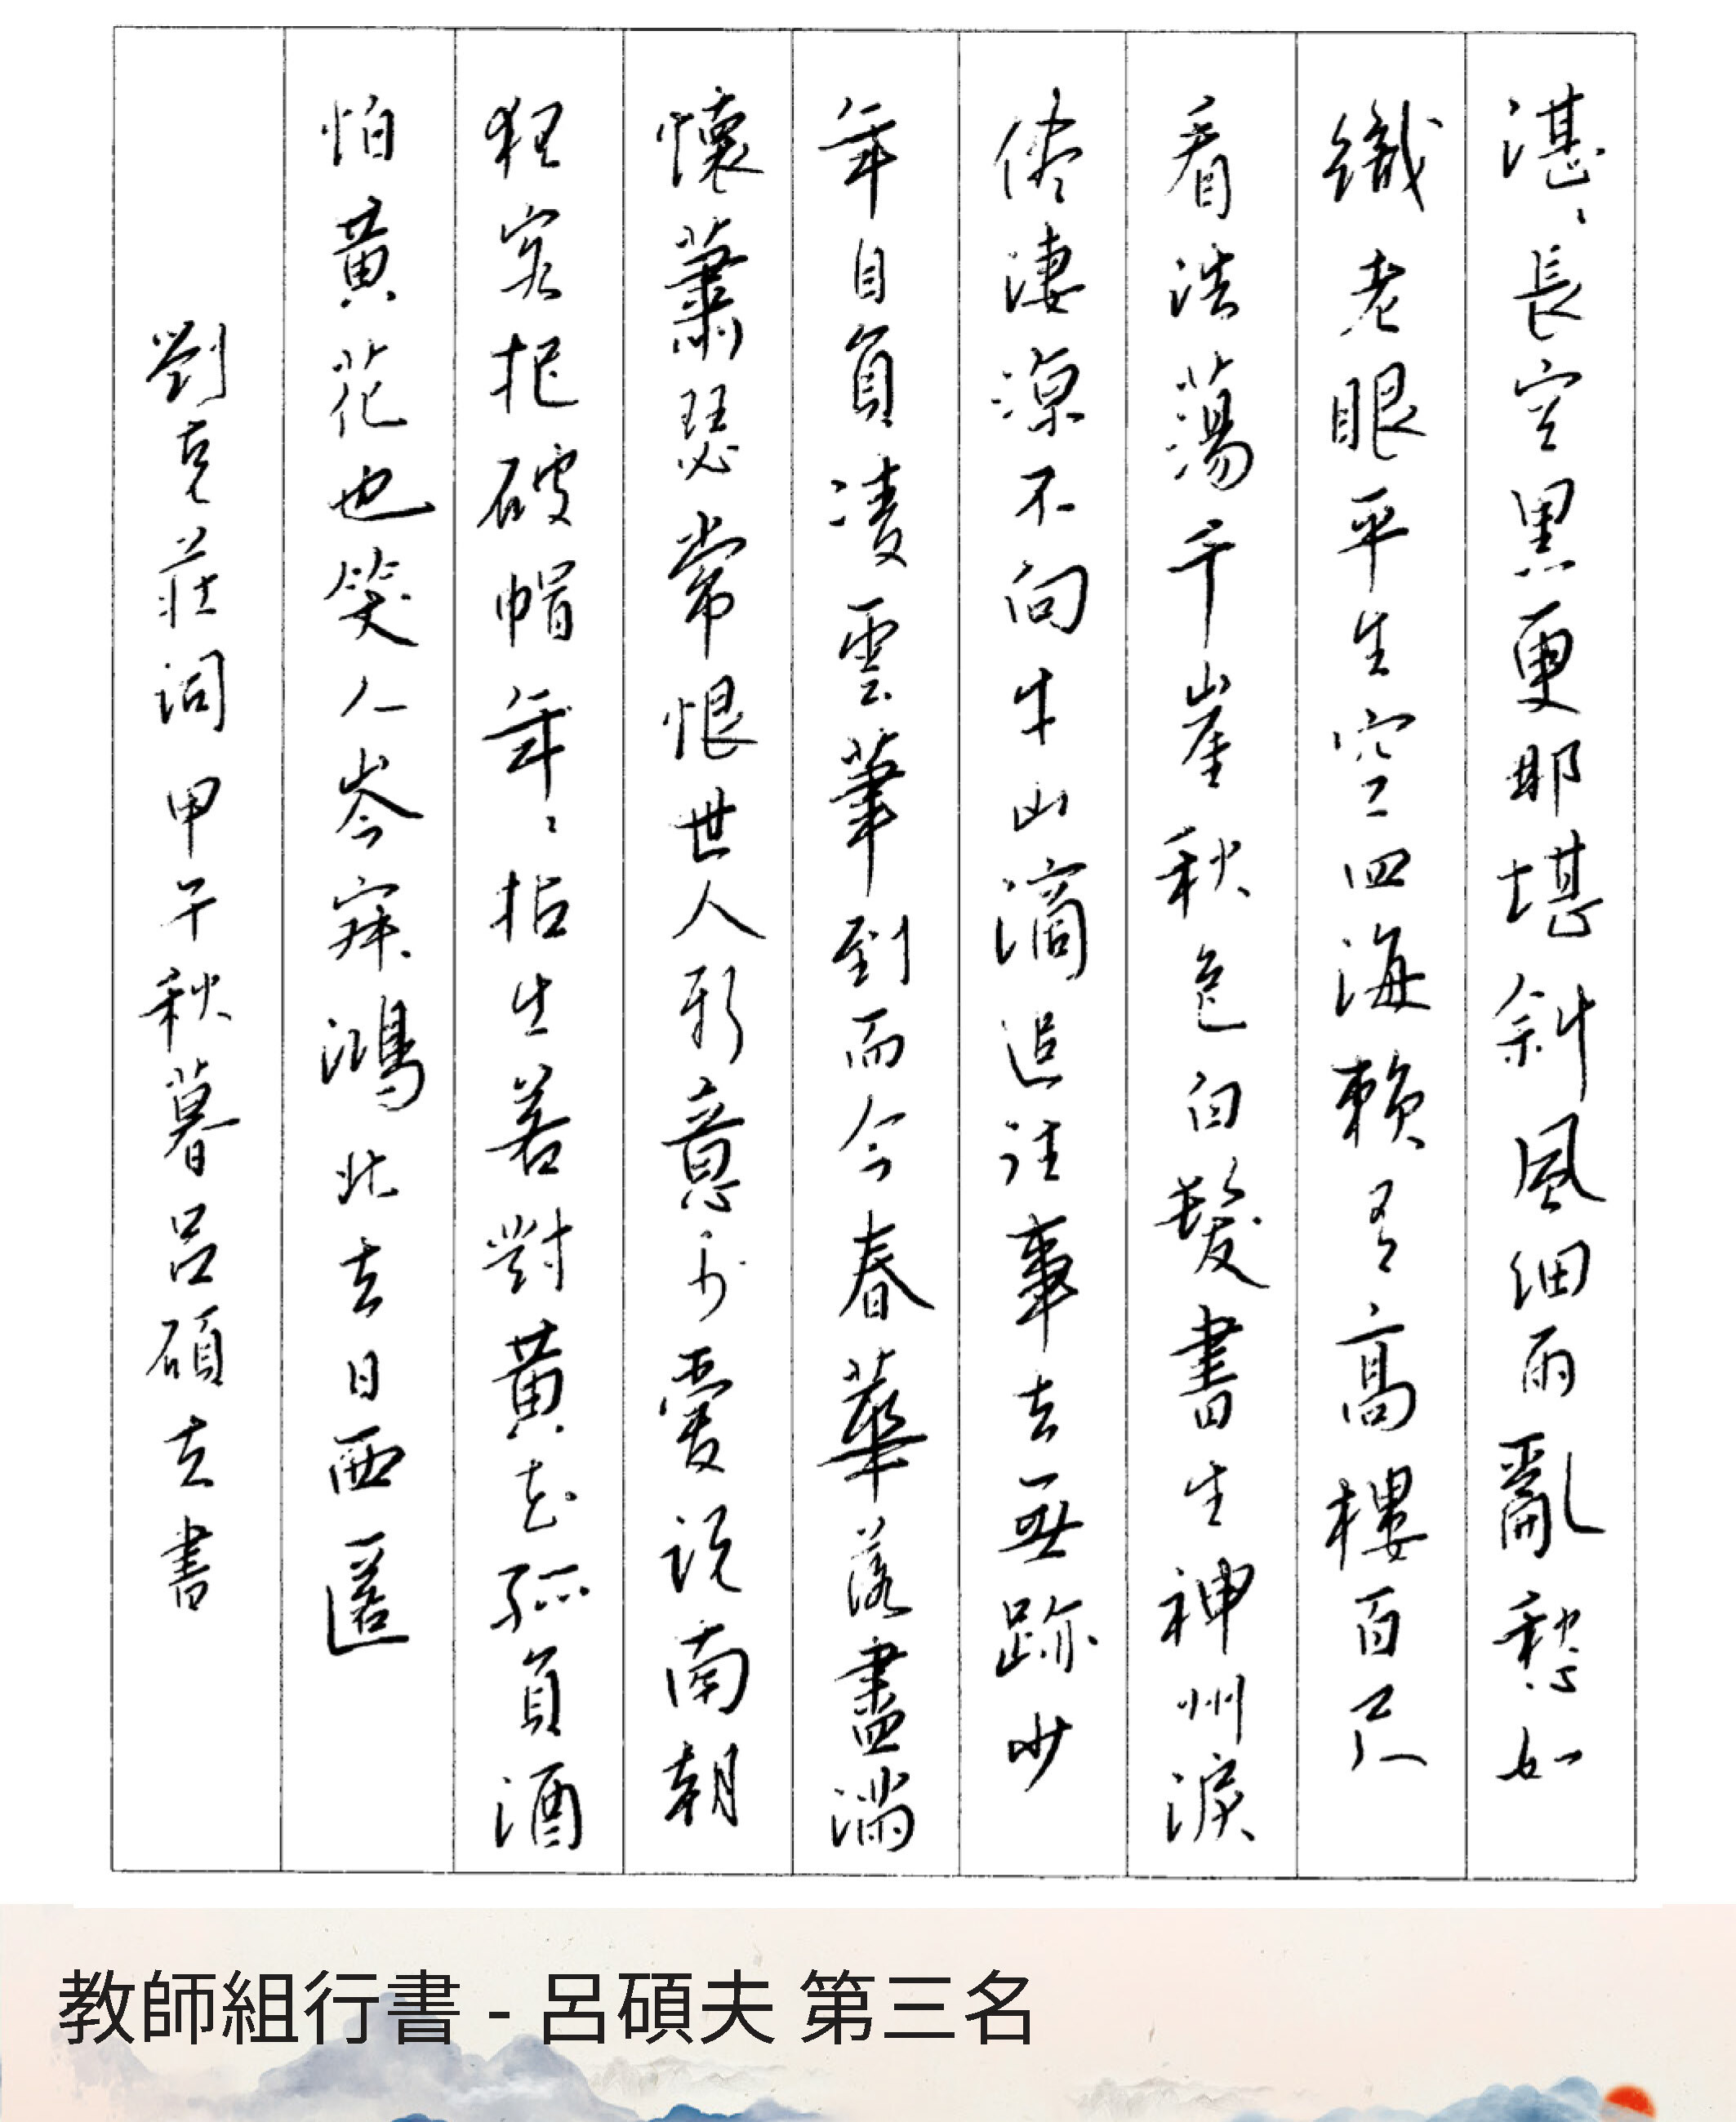 湛湛長空黑更那堪斜風細雨亂愁如
織老眼平生空四海賴有高樓百尺
看浩蕩千崖秋色白髮書生神州淚
儘淒涼不向牛山滴追往事去無跡少
年自負凌雲筆到而今春華落盡滿
懷蕭瑟常恨世人新意少愛說南朝
狂客把破帽年年拈出若對黃花孤負酒
怕黃花也笑人岑寂鴻北去日西匿
劉克莊詞 甲午秋暮呂碩夫書
教師組行書 - 呂碩夫 第三名